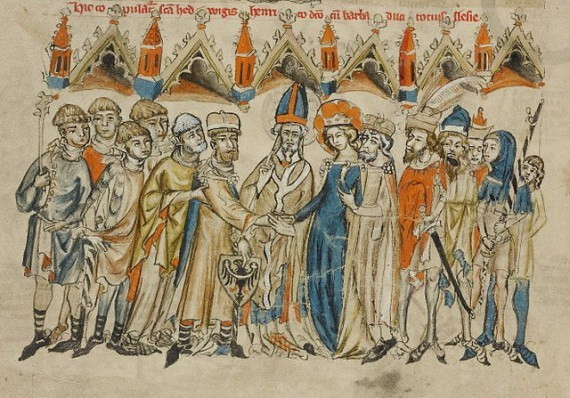 Hic co pulat᷑ scā hed wigis henri co dco cū barba duci tocius slesie